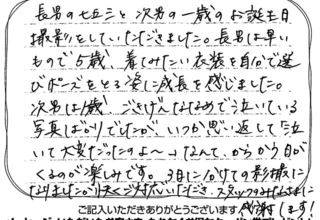 長男の七五三と次男の一歳のお誕生日
撮影をしていただきました。長男は早い
もので5歳、着てみたい衣装を自分で選
びポーズをとる姿に成長を感じました。
次男は1歳、ごきげんななめで泣いている
写真ばかりでしたが、いつか思い返して「泣
いて大変だったのよ〜」なんて、からかう日が
くるのが楽しみです。3日に分けての撮影に
なりましたが快くご対応いただき、スタッフのみなさまに
感謝します!
ご記入いただきありがとうございます。